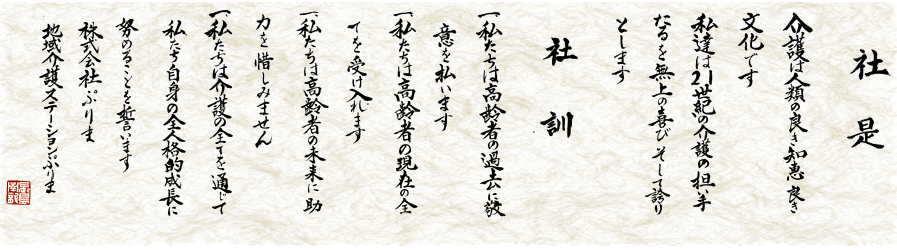 社是
介護は人類の良き知恵 良き
文化です
私達は21世紀の介護の担い手
なるを無上の喜び そして誇り
とします
社訓
一、私たちは高齢者の過去に敬
意を払います
一、私たちは高齢者の現在の全
てを受け入れます
一、私たちは高齢者の未来に助
力を惜しみません
一、私たちは介護の全てを通じて
私たち自身の全人格的成長に
努めることを誓います
株式会社ぷりま
地域介護ステーションぷりま